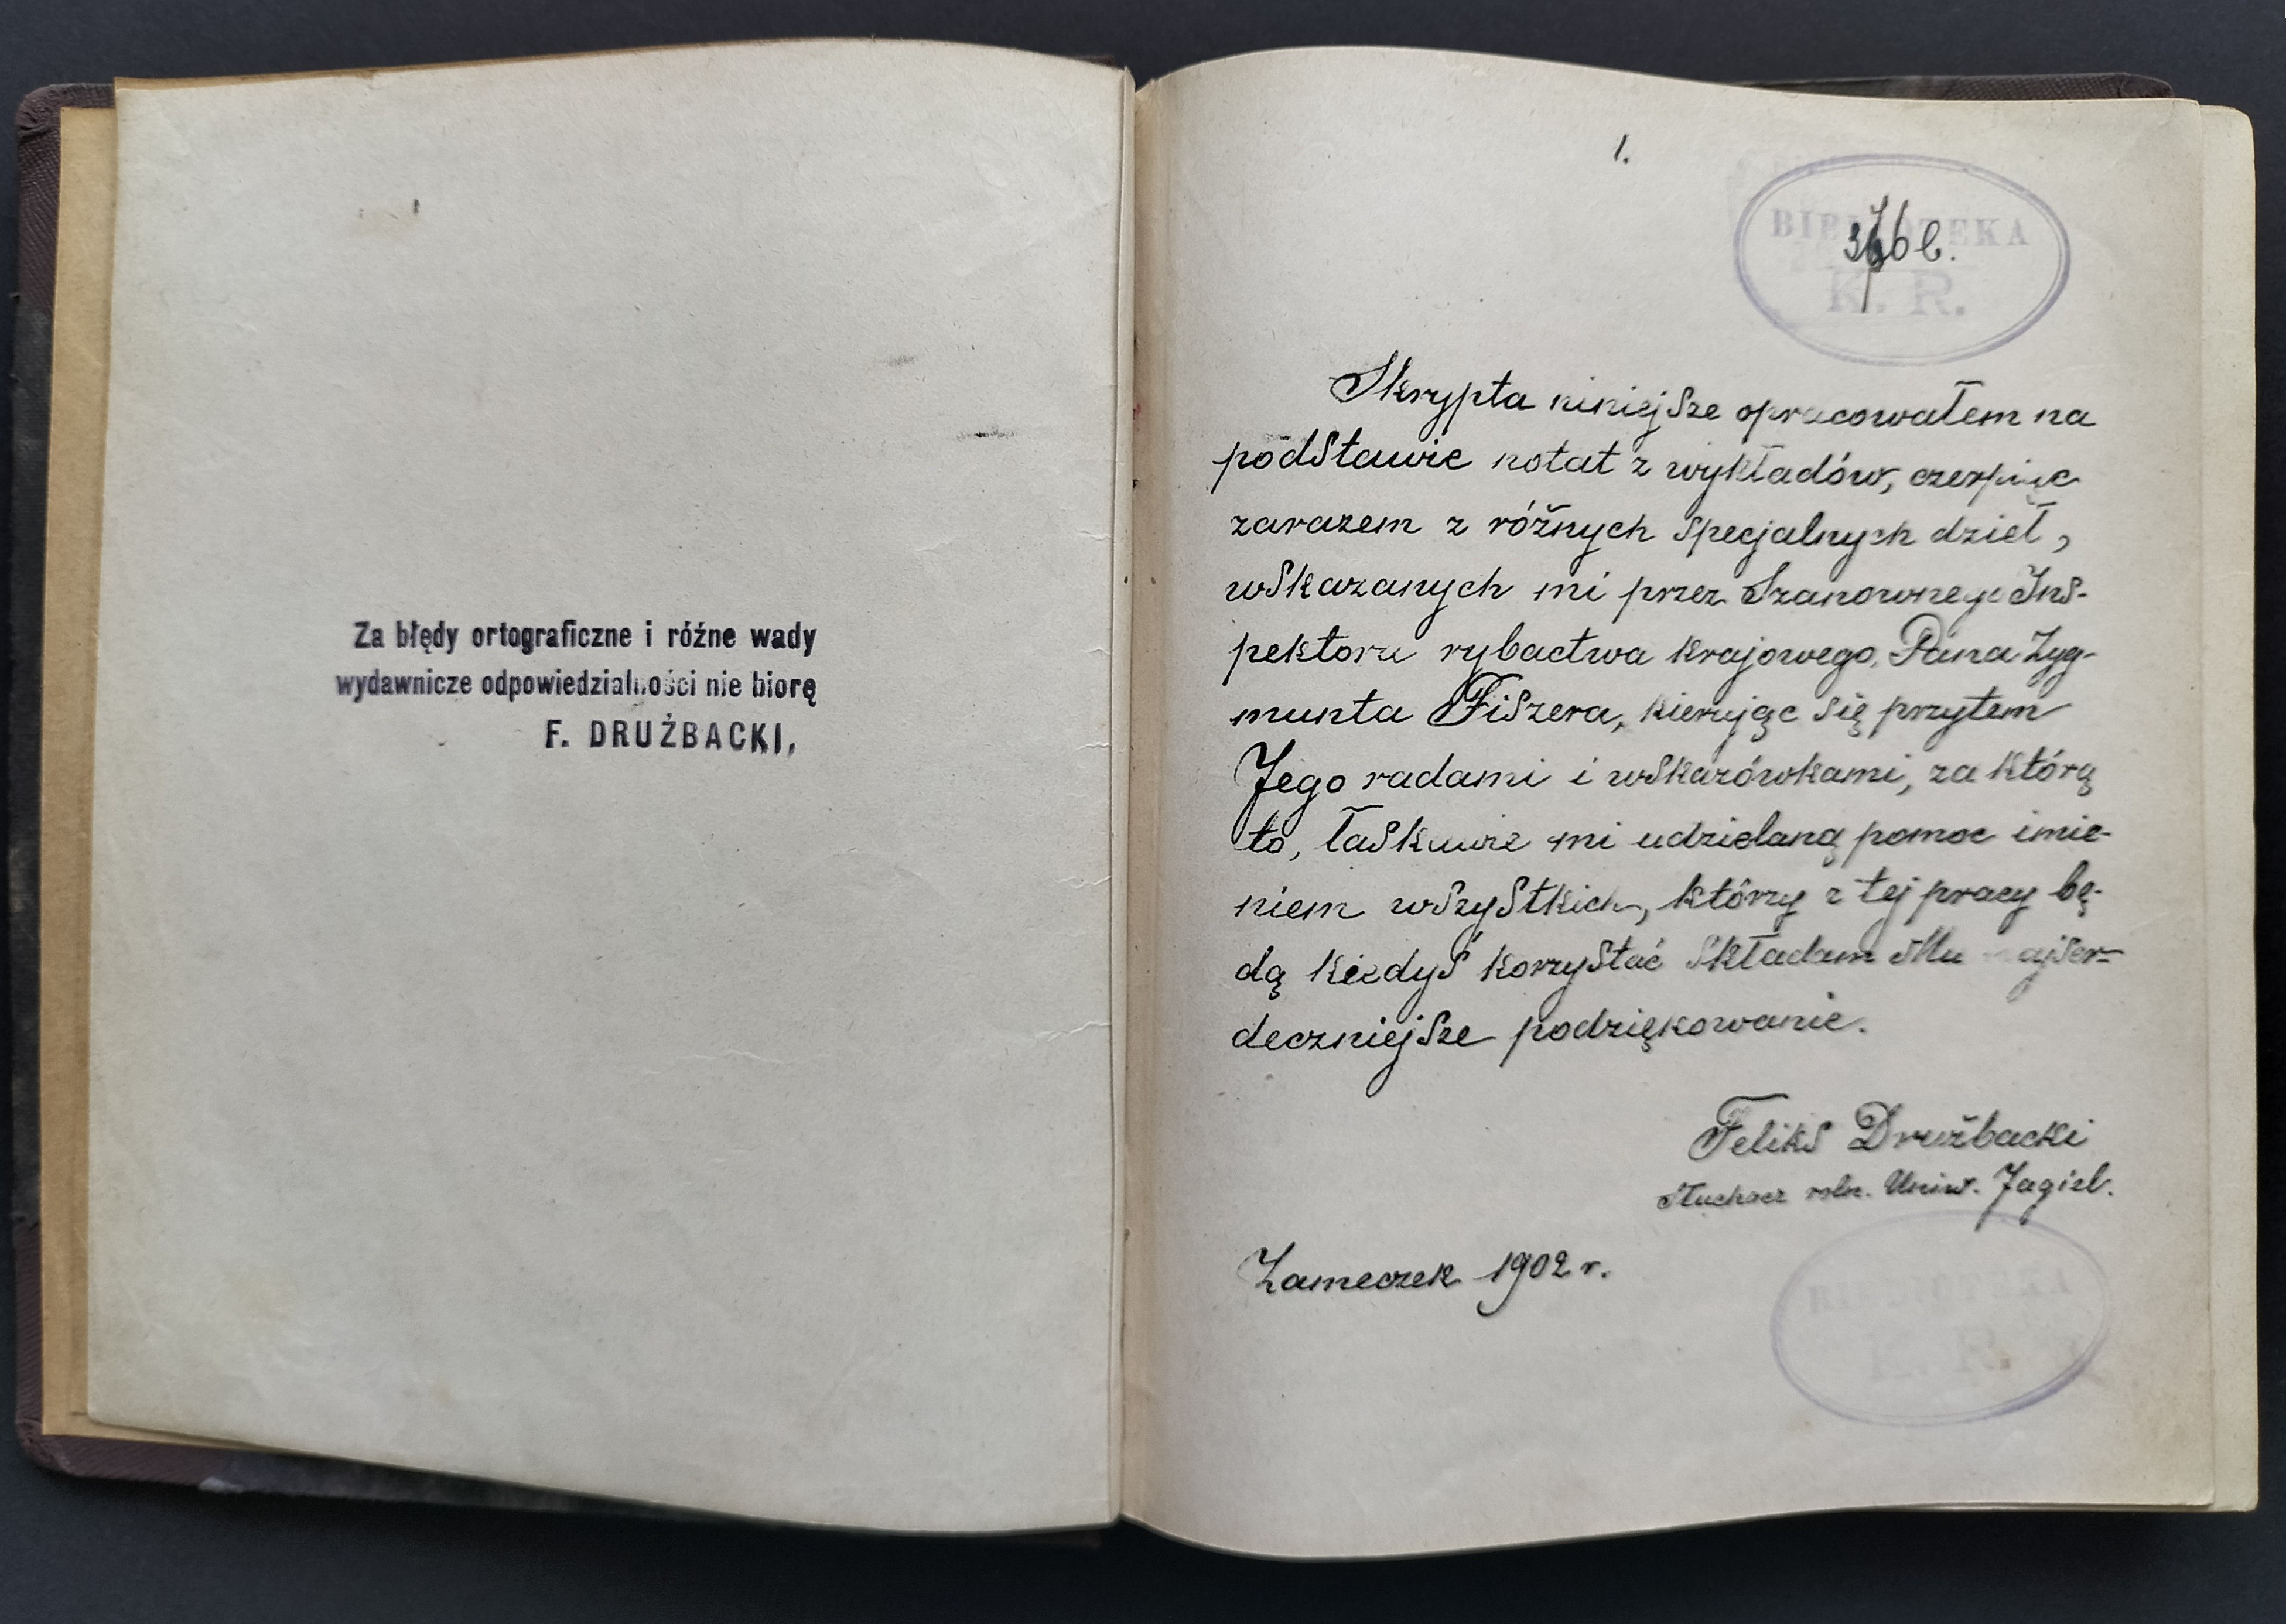 Za błędy ortograficzne i różne wady
wydawnicze odpowiedzialności nie biorę
F. DRUŻBACKI.
1.
BIBLIOTEKA
K. R.
Skrypta niniejsze opracowałem na
podstawie notat z wykładów, czerpiąc
zarazem z różnych specjalnych dzieł,
wskazanych mi przez Szanownego Ins-
pektora rybactwa krajowego, Pana Zyg-
munta Fiszera, kierując się przytem
Jego radami i wskazówkami, za którą
to, łaskawie mi udzielaną pomoc imie-
niem wszystkich, którzy z tej pracy bę-
dą kiedyś korzystać składam Mu najser-
deczniejsze podziękowanie.
Feliks Drużbacki
słuchacz roln. Uniw. Jagiel.
Zameczek 1902 r.
BIBLIOTEKA
K. R.